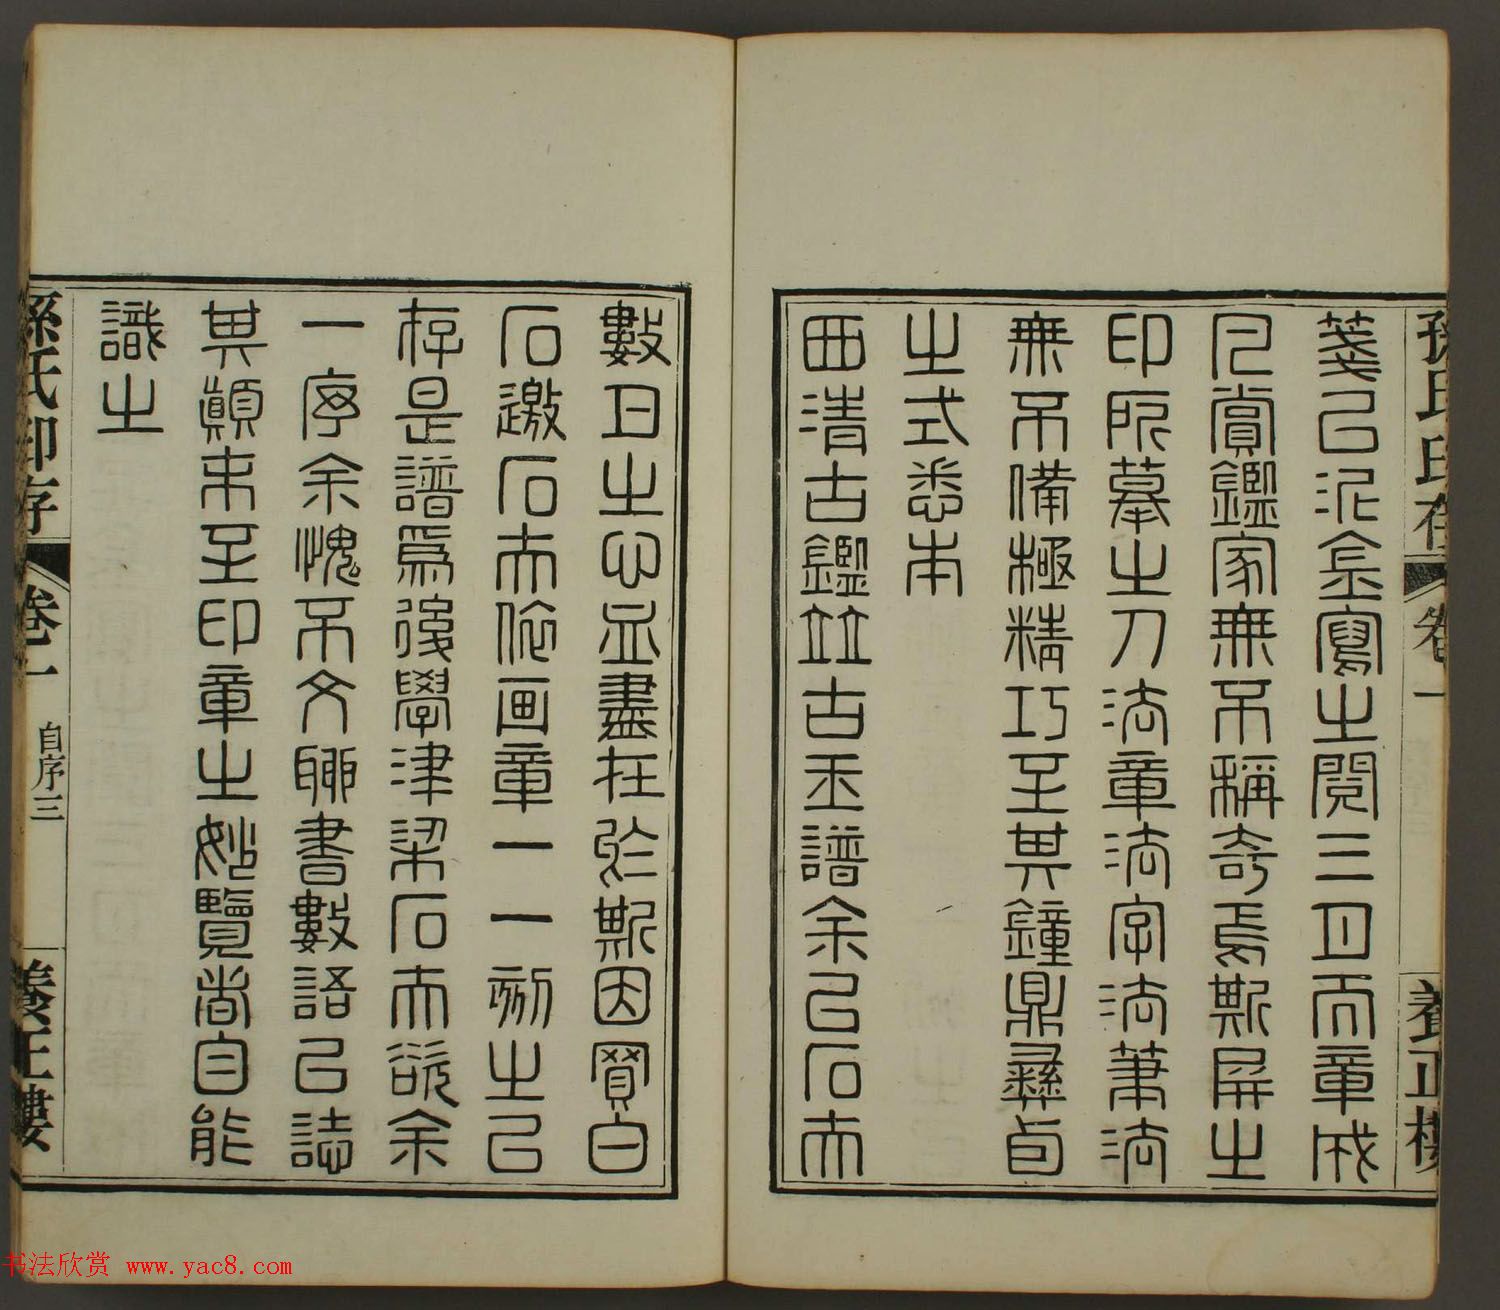 孫氏印存 卷一 養正樓
箋以泥金寫之閱三月而章成
凡賞鑑家無不稱奇焉斯屏之
印摹之刀法章法字法筆法
無不備極精巧至其鐘鼎彝卣
之式悉本
西清古鑑竝古玉譜余以石市
數日之心血盡在於斯因買白
石邀石市依圖章一一刻之以
存是譜爲後學津梁石市欲余
一序余愧不文聊書數語以誌
其顛末至印章之妙覽者自能
識之
孫氏印存 卷一 自序三 養正樓
书法欣赏 www.yac8.com